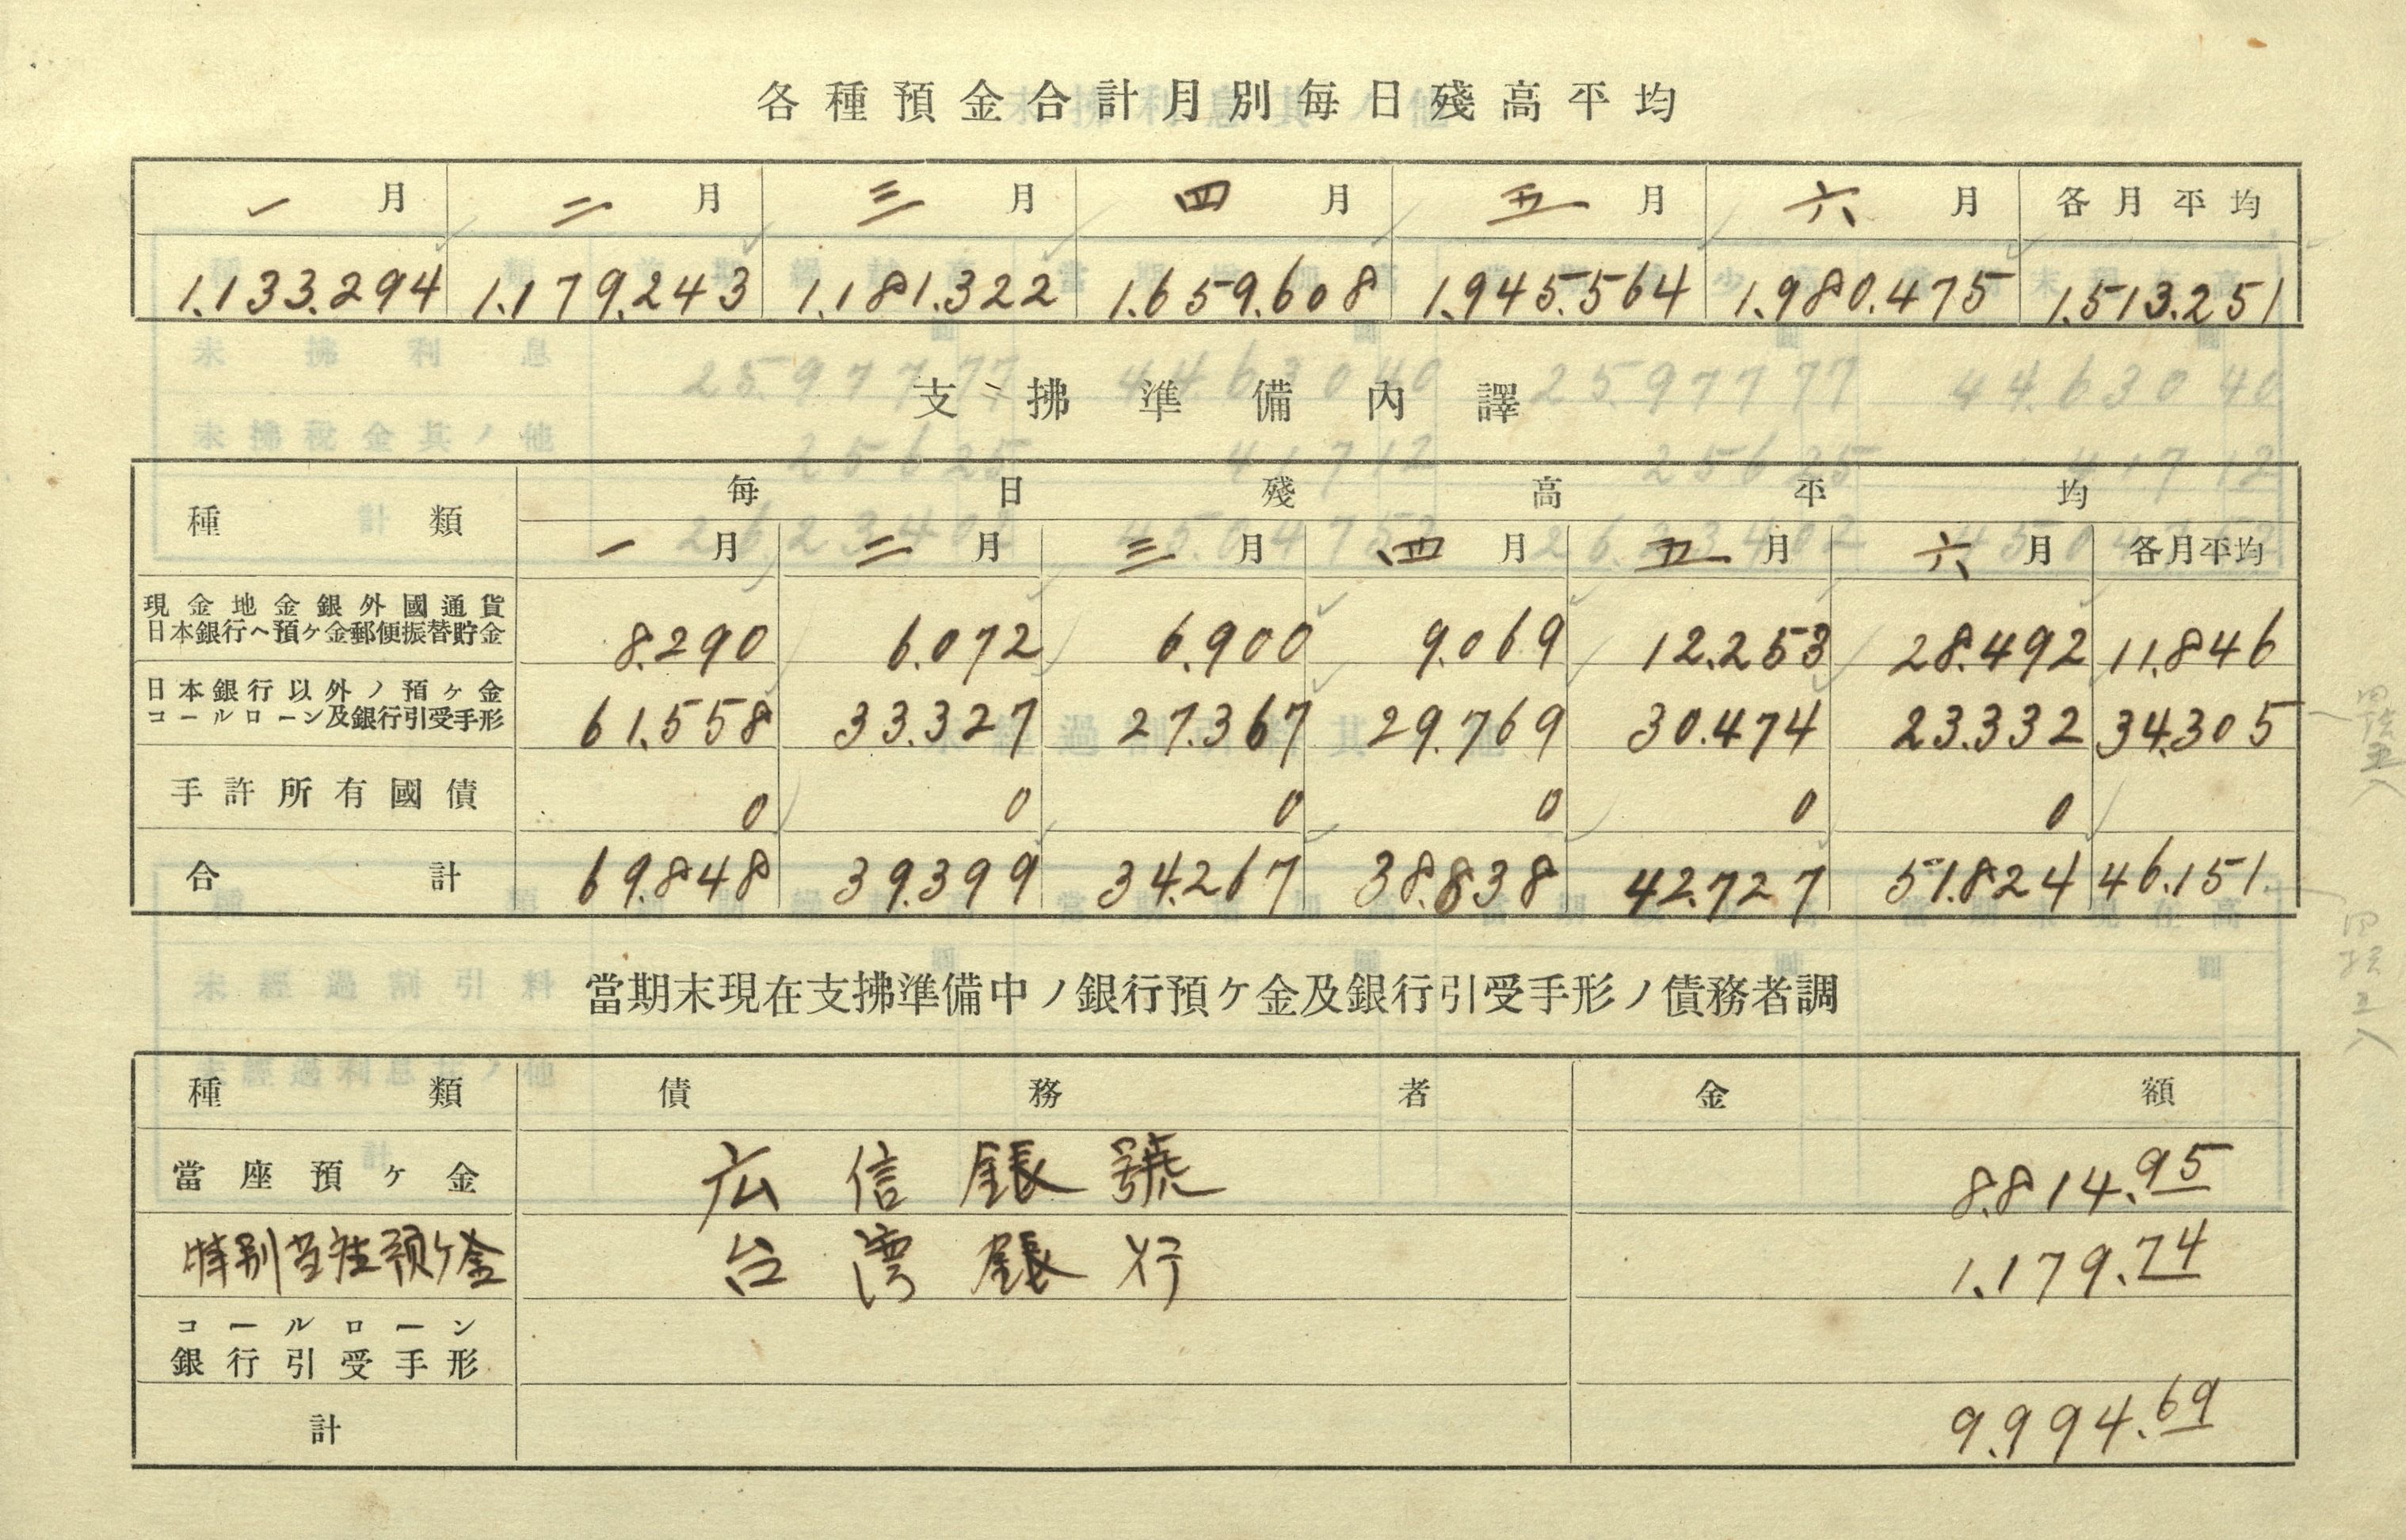 各種預金合計月別毎日殘高平均
一月 二月 三月 四月 五月 六月 各月平均
1.133.294 1.179.243 1.181.322 1.659.608 1.945.564 1.980.475 1.513.251
支拂準備內譯
種類 每日殘高平均
一月 二月 三月 四月 五月 六月 各月平均
現金地金銀外國通貨
日本銀行ヘ預ケ金郵便振替貯金 8.290 6.072 6.900 9.069 12.253 28.492 11.846
日本銀行以外ノ預ケ金
コールローン及銀行引受手形 61.558 33.327 27.367 29.769 30.474 23.332 34.305
四捨五入
手許所有國債 0 0 0 0 0 0
合計 69.848 39.399 34.267 38.838 42.727 51.824 46.151.
四捨五入
當期末現在支拂準備中ノ銀行預ケ金及銀行引受手形ノ債務者調
種類 債務者 金額
當座預ケ金 広信銀號 8.814.95
特別当座預ケ金 台湾銀行 1.179.74
コールローン
銀行引受手形
計 9.994.69